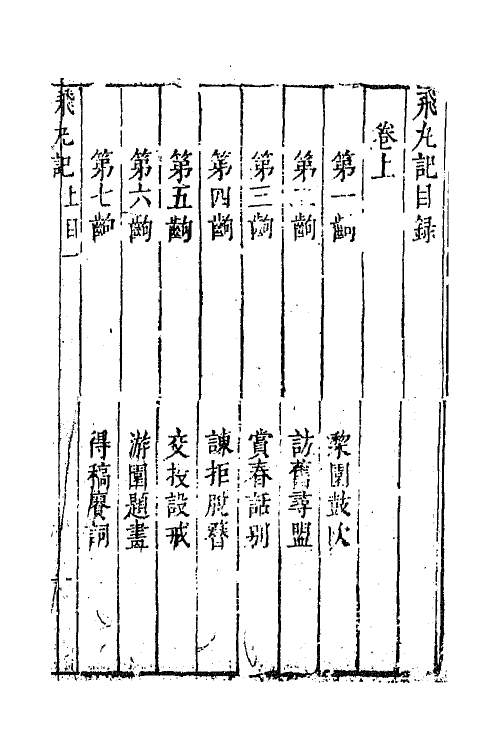 飛丸記目錄
卷上
第一齣 梨園鼓吹
第二齣 訪舊尋盟
第三齣 賞春話別
第四齣 諫拒脫簪
第五齣 交投設戒
第六齣 游園題畫
第七齣 得稿賡詞
飛丸記 上目 一